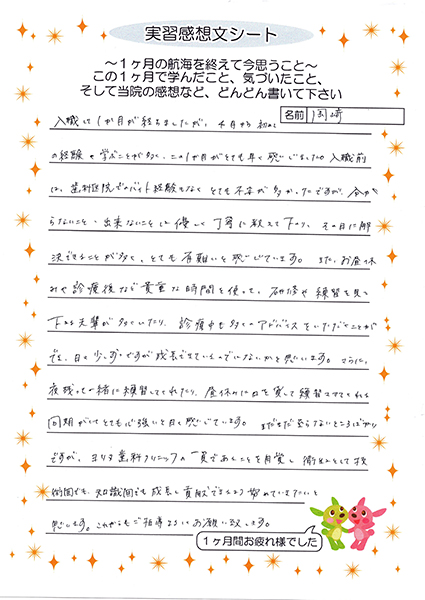 実習感想文シート
～1ヶ月の航海を終えて今思うこと～
この1ヶ月で学んだこと、気づいたこと、
そして当院の感想など、どんどん書いて下さい
名前 岡崎
入職して1か月が経ちましたが、4月から初めて
の経験や学ぶことが多く、この1か月がとても早く感じました。入職前
は、歯科医院でのバイト経験もなくとても不安が多かったですが、分か
らないこと・出来ないことに優しく丁寧に教えて下さり、その日に解
決できることが多く、とても有難いと感じています。また、お昼休
みや診療後など貴重な時間を使って、研修や練習を見て
下さる先輩が多くいたり、診療中も多くのアドバイスをいただくことが
でき、日々少しずつですが成長できているのではないかと思います。さらに、
夜残って一緒に練習してくれたり、昼休みに口を貸して練習させてくれる
同期がいてとても心強いと日々感じています。まだまだ至らないところばかり
ですが、ヨリタ歯科クリニックの一員であることを自覚し、衛生士として技
術面でも、知識面でも成長し貢献できるよう努めていきたいと
思います。これからもご指導よろしくお願い致します。
1ヶ月間お疲れ様でした